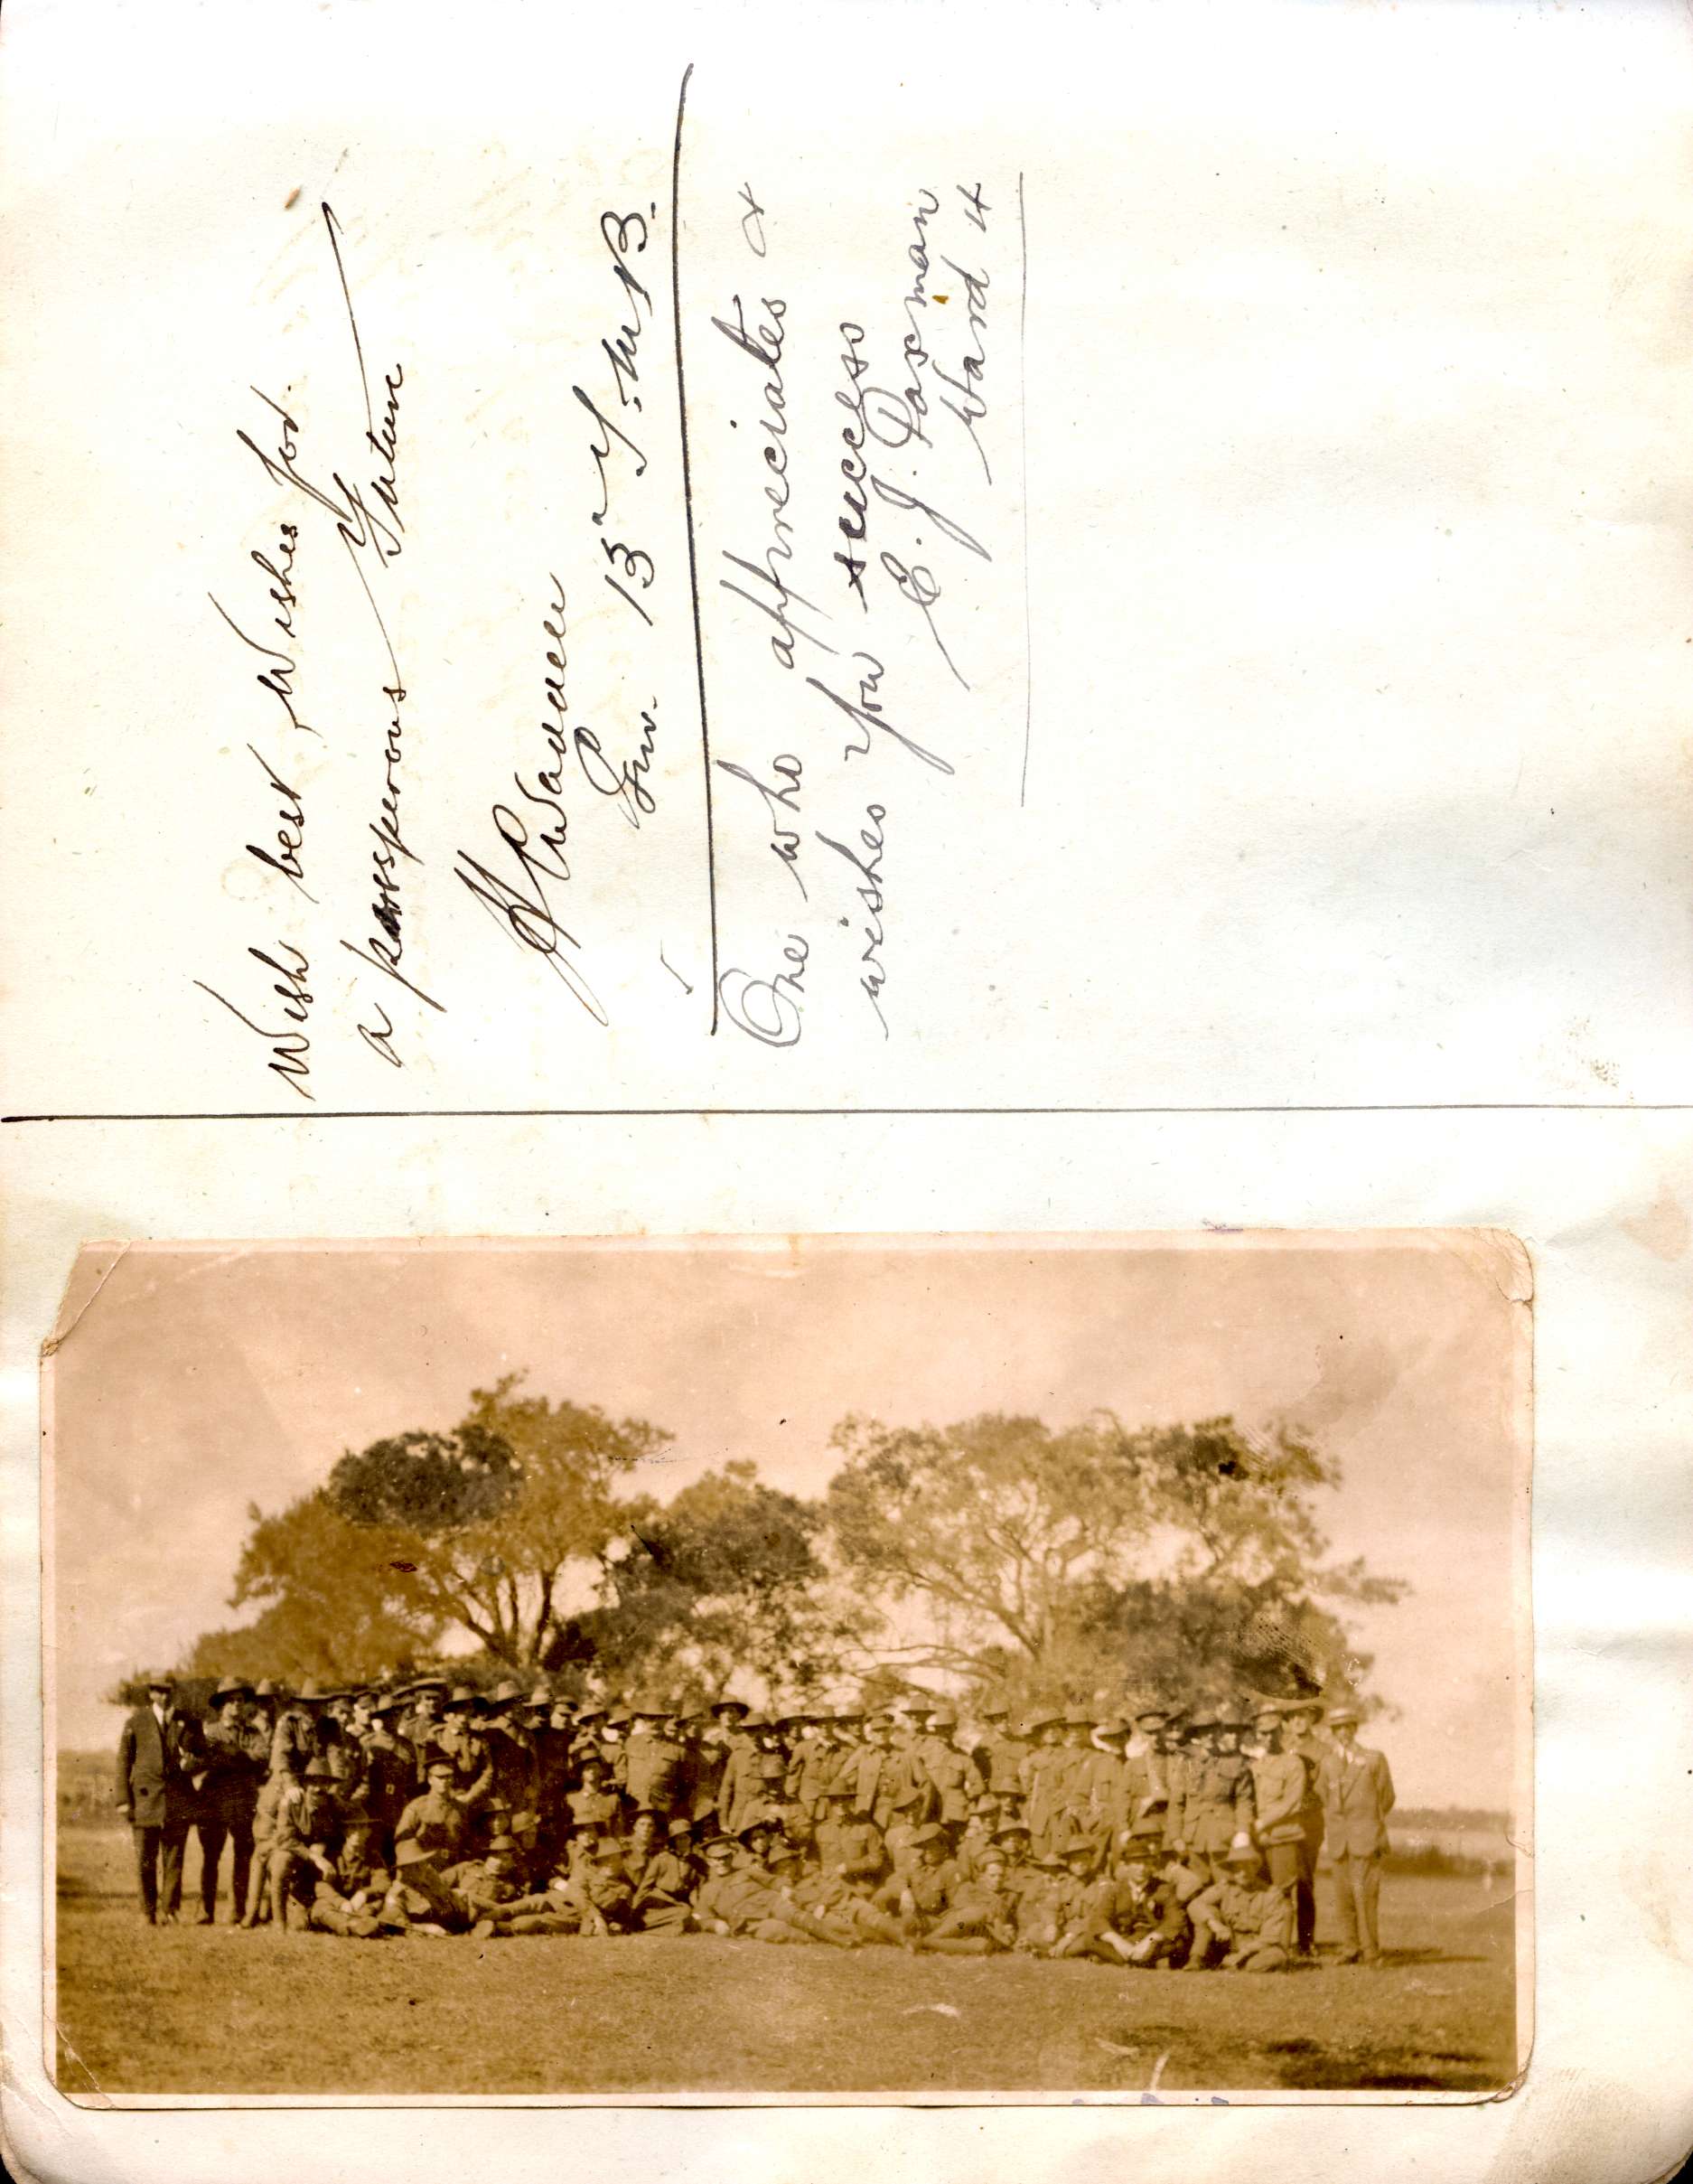 Wish best wishes for.
a prosperous Future
Gnr. 13th
One who appreciates &
wishes you success
E. J. Paxman
Ward 4